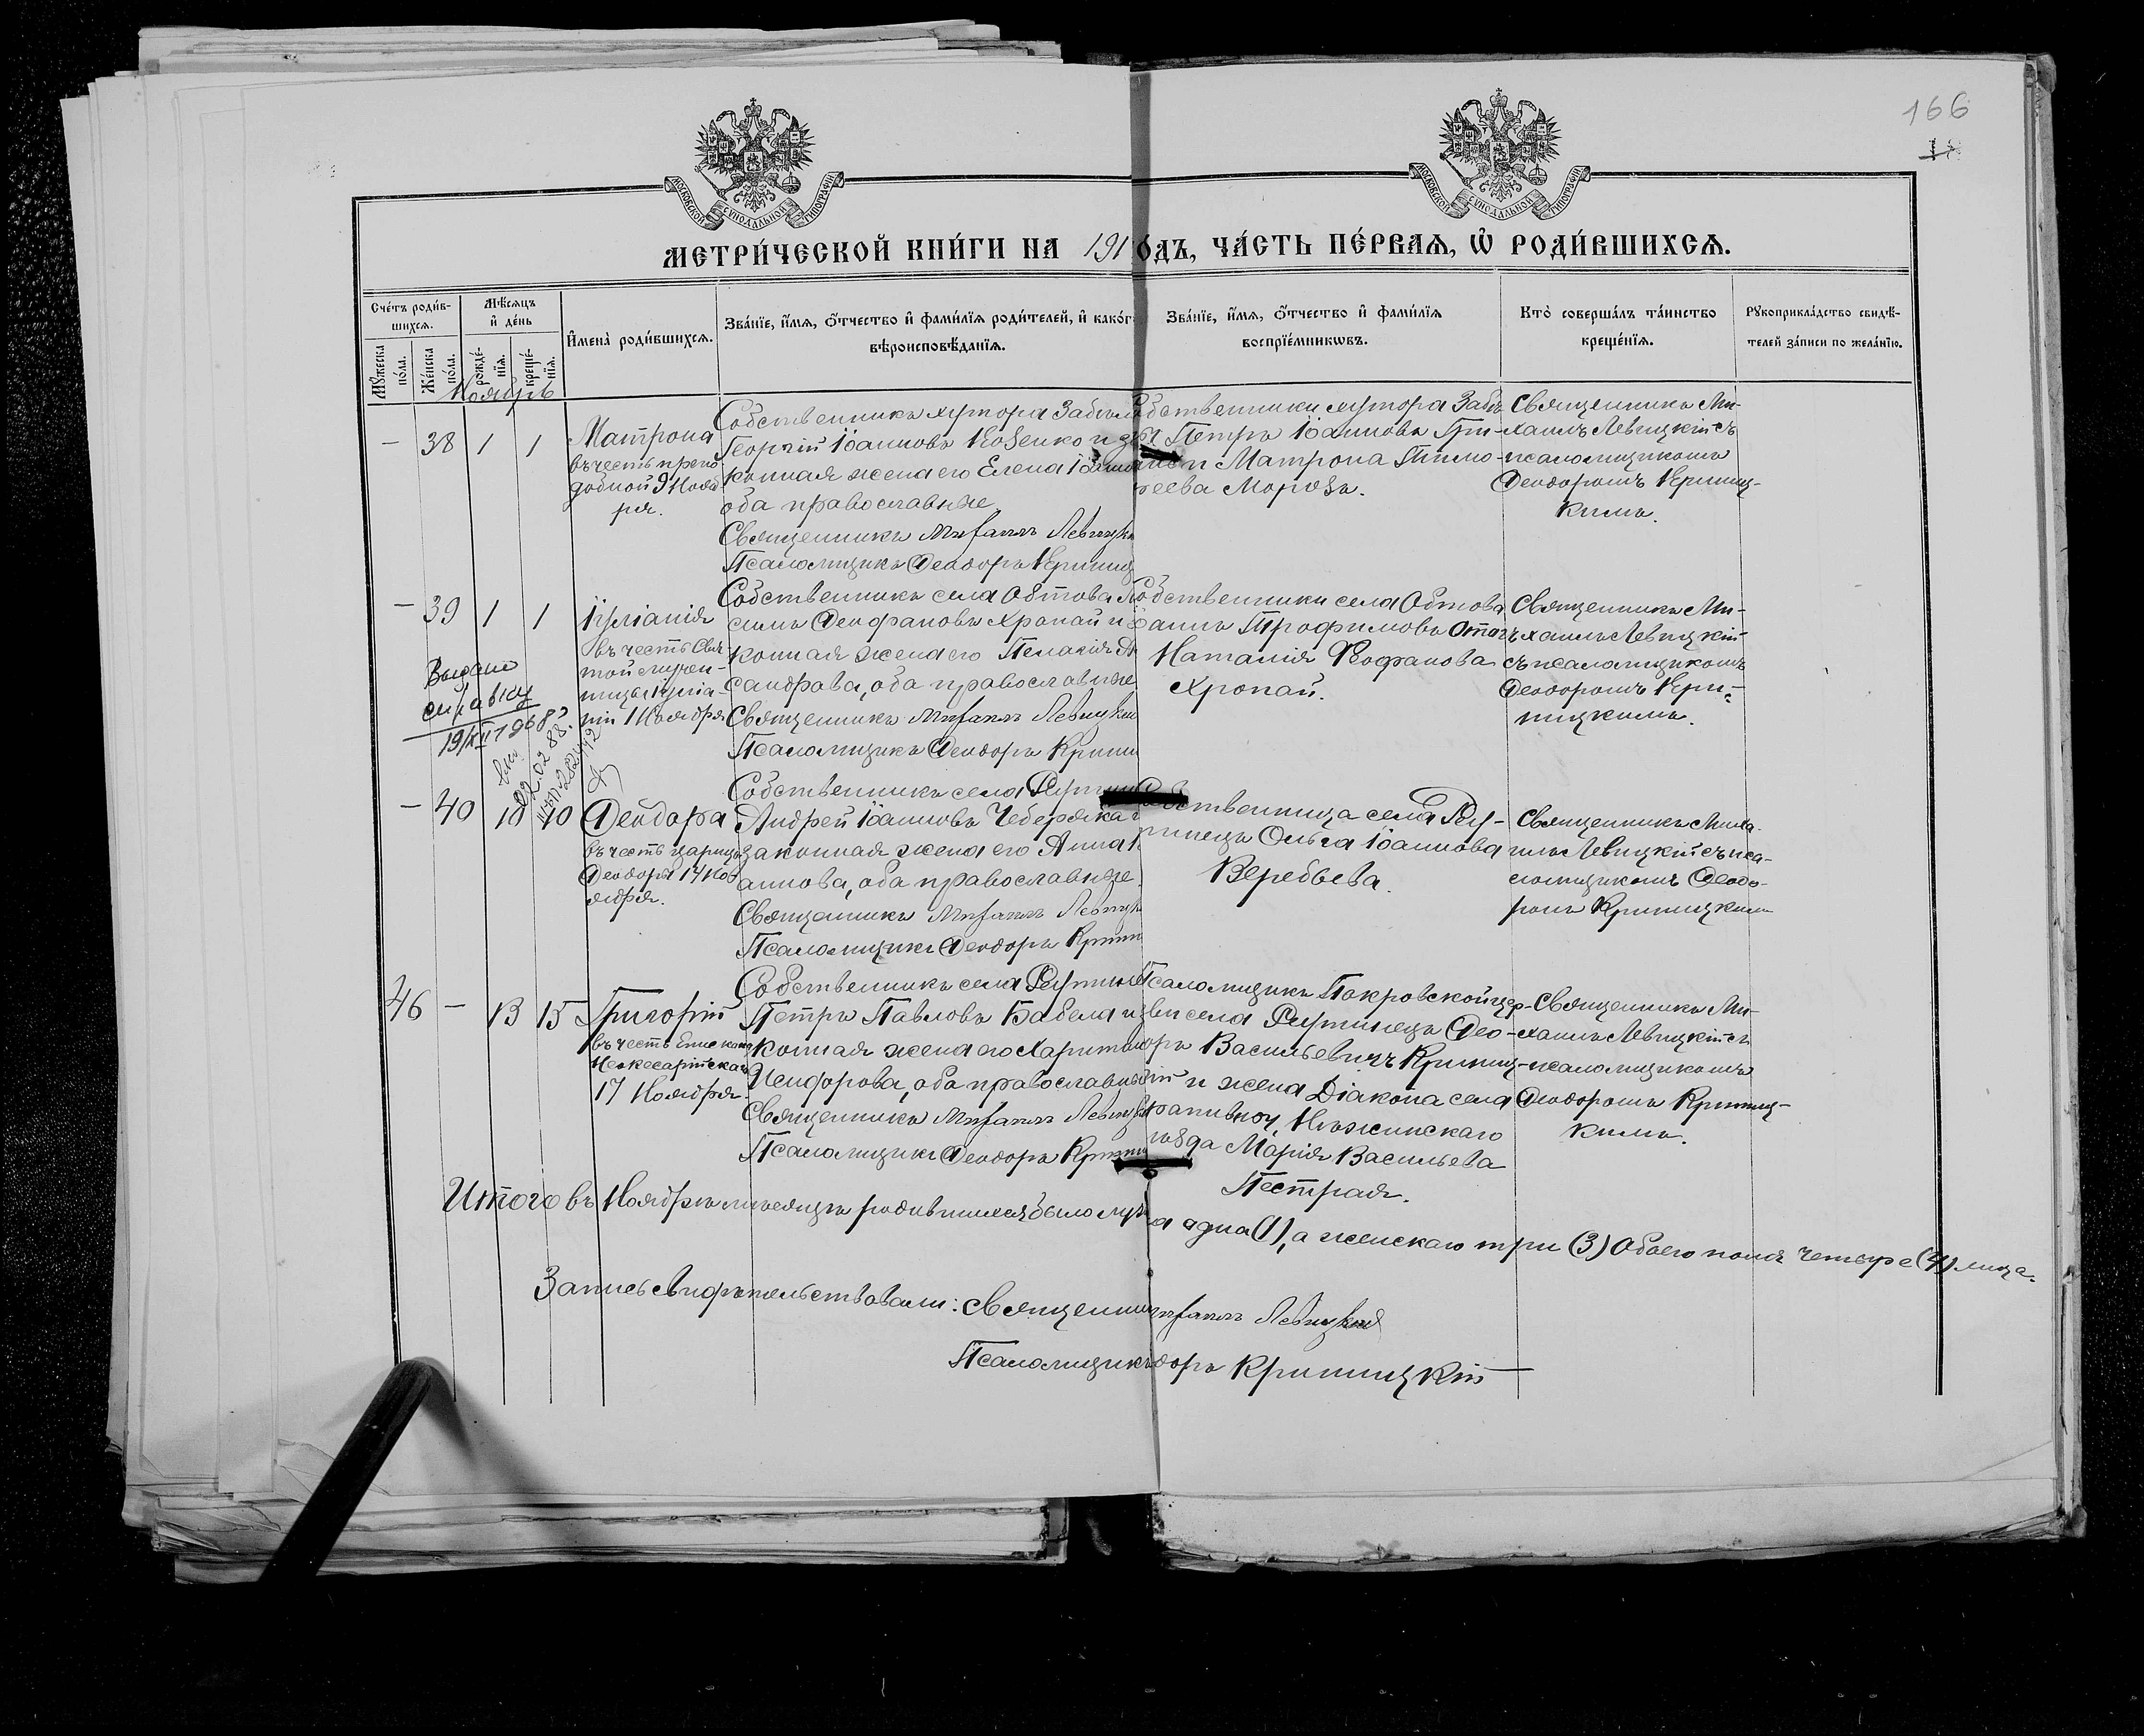 166
МОСКОВСКОЙ СѴНОДАЛЬНОЙ ТИПОГРАФІИ
МОСКОВСКОЙ СѴНОДАЛЬНОЙ ТИПОГРАФІИ
МЕТРИ́ЧЕСКОЙ КНИ́ГИ НА 191 ОДЪ, ЧА́СТЬ ПЕ́РВАѦ, Ѡ҆ РОДИ́ВШИХСѦ.
Сче́тъ роди́в-
шихсѧ.
Мꙋжеска по́ла.
Же́нска по́ла.
Мѣ́сѧцъ
и҆ де́нь
рожде́-
нїѧ.
креще́-
нїѧ.
И҆мена̀ роди́вшихсѧ.
Зва́нїе, и҆́мѧ, ѻ҆́тчество и҆ фами́лїѧ роди́телей, и҆ како́г
вѣроисповѣ́данїѧ.
Зва́нїе, и҆́мѧ, ѻ҆́тчество и҆ фами́лїѧ
воспрїе́мникѡвъ.
Кто̀ соверша́лъ та́инство
креще́нїѧ.
Рꙋкоприкла́дство свидѣ́-
телей за́писи по жела́нїю.
Ноябрь
— 38 1 1
Матрона
въ честь препо
добной 9 Нояб
ря.
Собственникъ хутора
Георгій Іоанновъ Козенко и
конная жена его Елена
оба православные
Священникъ Михаилъ Левицкі
Псаломщикъ Ѳеодоръ Криниц
обственники хутора
Петръ Іоанновъ Гри-
и Матрона Тимо-
ѳеева Морозъ.
Священникъ Ми-
хаилъ Левицкій съ
псаломщикомъ
Ѳеодоромъ Криниц-
кимъ.
— 39 1 1
Іуліанія
въ честь Свя
той мучен-
ницы Іуліа-
ніи 1 Ноября
Выдано
справку
19/XII 1968
22.02 88.
Собственникъ села Обтова
симъ Ѳеофановъ Хропай и
конная жена его Пелагія
сандрова, оба православные
Священникъ Михаилъ Левицкі
Псаломщикъ Ѳеодоръ Крини
обственники села Обтова
Трофимовъ
Наталія Ѳеофанова
Хропай.
Священникъ Ми-
хаилъ Левицкій
съ псаломщикомъ
Ѳеодоромъ Кри-
ницкимъ.
— 40 10 10
Ѳеодора
въ честь царицы
Ѳеодоры 14 Но
ября.
Собственникъ села
Андрей Іоанновъ Чеберяка
законная жена его Анна
аннова, оба православные.
Священникъ Михаилъ Левицк
Псаломщикъ Ѳеодоръ Крини
ственница села Реу-
тинецъ Ольга Іоаннова
Веребьева.
Священникъ Миха-
илъ Левицкій съ пса-
ломщикомъ Ѳеодо-
ромъ Криницкимъ
46 — 13 15
Григорій
въ честь Епископа
Неокесарійскаго
17 Ноября.
Собственникъ села Реутине
Петръ Павловъ Бабела и
конная жена его Харитина
Исидорова, оба православные
Священникъ Михаилъ Левицкі
Псаломщикъ Ѳеодоръ Крини
Псаломщикъ Покровской цер-
кви села Реутинецъ Ѳео-
доръ Васильевичъ Криниц-
кій и жена Діакона села
Нѣжинскаго
уѣзда Марія Васильева
Пестрая.
Священникъ Ми-
хаилъ Левицкій съ
псаломщикомъ
Ѳеодоромъ Криниц-
кимъ.
Итого въ Ноябрѣ мѣсяцѣ родившихся было муж а одна (1), а женскаго три (3) Обоего пола четыре (4) лица.
Запись свидѣтельствовали: Священник ихаилъ Левицкій
Псаломщикъ доръ Криницкій